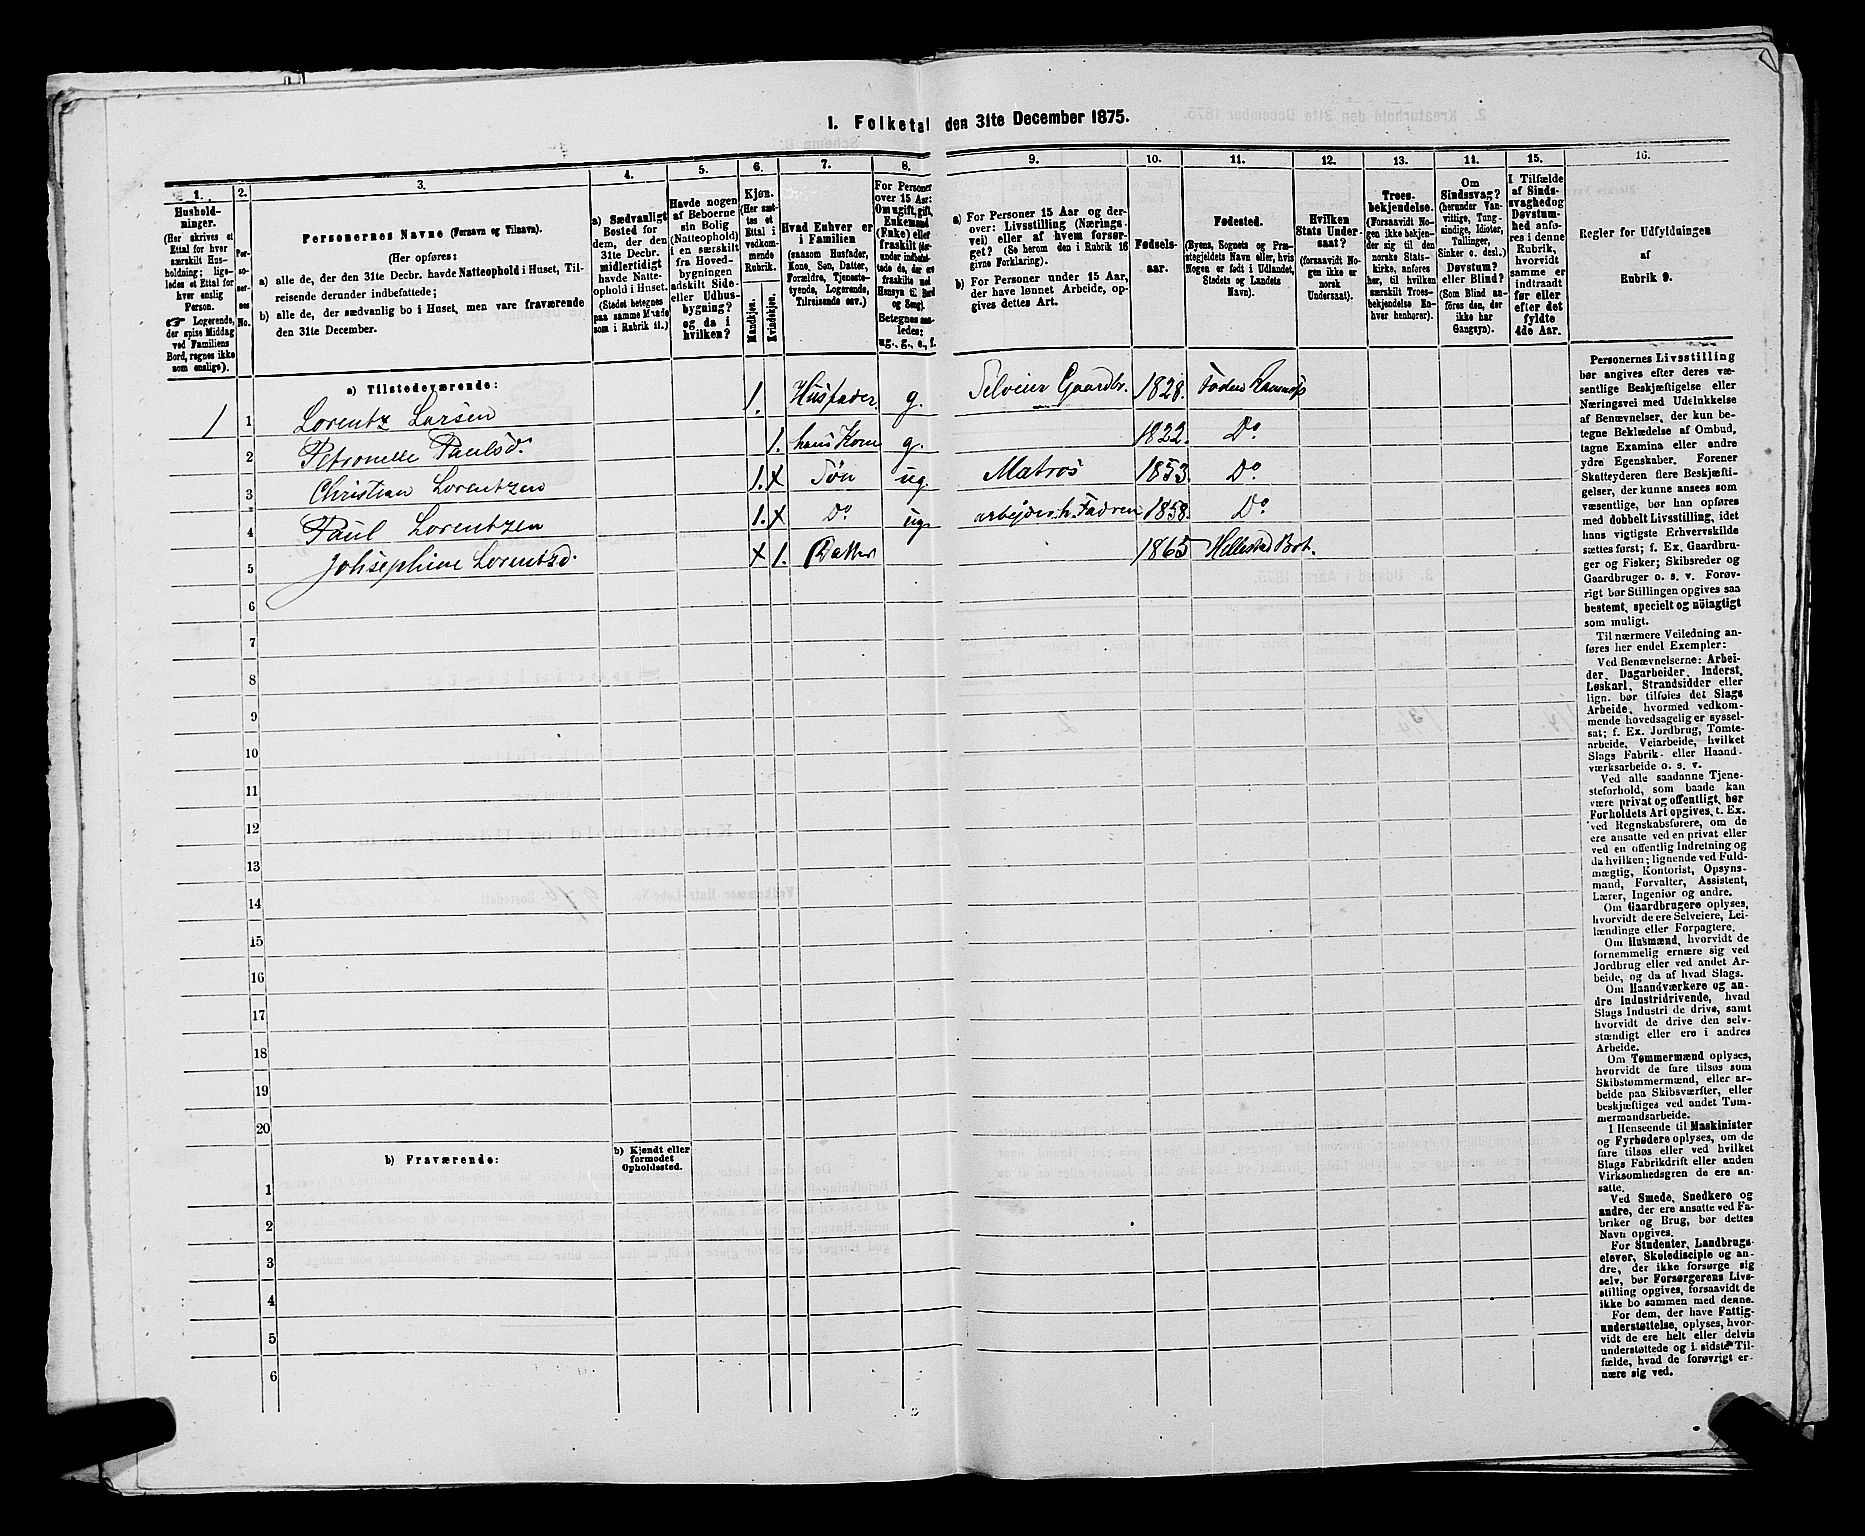 1. Folketal den 31te December 1875.
1.
2.
3.
4.
5.
6.
7.
8.
9.
10.
11.
12.
13.
14.
15.
16.
Hushold-
ninger.
(Her skrives et
Ettal for hver
særskilt Hus-
holdning; lige-
ledes et Ettal for
hver enslig
Person.
☞ Logerende,
der spise Middag
ved Familiens
Bord, regnes ikke
som enslige).
Per-
so-
ner-
nes
No.
Personernes Navne (Fornavn og Tilnavn).
(Her opføres:
a) alle de, der den 31te Decbr. havde Natteophold i Huset, Til-
reisende derunder indbefattede;
b) alle de, der sædvanlig bo i Huset, men vare fraværende
den 31te December.
a) Sædvanligt
Bosted for
dem, der den
31te Decbr.
midlertidigt
havde Natte-
ophold i Huset.
(Stedet betegnes
paa samme Maade
som i Rubrik 11.)
Havde nogen
af Beboerne
sin Bolig
(Natteophold)
i en særskilt
fra Hoved-
bygningen
adskilt Side-
eller Udhus-
bygning?
og da i
hvilken?
Kjøn.
(Her sæt-
tes et
Ettal i
vedkom-
mende
Rubrik.
Mandkjøn.
Kvindekjøn.
Hvad Enhver er
i Familien
(saasom Husfader,
Kone, Søn, Datter,
Forældre, Tjeneste-
tyende, Logerende,
Tilreisende osv.)
For Personer
over 15 Aar:
Om ugift, gift,
Enkemand
(Enke) eller
fraskilt

Betegnes saa-
ledes:
ug., g., e., f.
a) For Personer 15 Aar og der-
over: Livsstilling (Nærings-
vei) eller af hvem forsør-
get? (Se herom den i Rubrik 16
givne Forklaring).
b) For Personer under 15 Aar,
der have lønnet Arbeide, op-
gives dettes Art.
Fødsels-
aar.
Fødested.
(Byens, Sognets og Præ-
stegjeldets Navn eller, hvis
Nogen er født i Udlandet,
Stedets og Landets
Navn).
Hvilken
Stats Under-
saat?
(forsaavidt No-
gen ikke er
norsk
Undersaat).
Troes-
bekjendelse.
(Forsaavidt No-
gen ikke bekjen-
der sig til den
norske Stats-
kirke, anføres
her, til hvilken
særskilt Troes-
bekjendelse En-
hver henhører).
Om
Sindssvag?
(herunder Van-
vittige, Tung-
sindige, Idioter,
Tullinger,
Sinker o. desl.)
Døvstum?
eller Blind?
(Som Blind an-
føres den, der
ikke har
Gangsyn).
I Tilfælde
af Sinds-
svaghed og
Døvstum-
hed anfø-
res i denne
Rubrik,
hvorvidt
samme er
indtraadt
før eller
efter det
fyldte
4de Aar.
Regler for Udfyldningen
af
Rubrik 9.
a) Tilstedeværende:
1 1 Lorentz Larsen 1. Husfader g. Selveier Gaardbr. 1828.
2 Petronelle Paulsd. 1. hans Kone g. 1822. Do
3 Christian Lorentzen 1. x Søn ug. Matros 1853. Do
4 Paul Lorentzen 1. x Do ug. arbejder h. Fadren 1858. Do
5 Johsephine Lorentsd. x 1. Datter 1865 Hellestad Bot.
6
7
8
9
10
11
12
13
14
15
16
17
18
19
20
b) Fraværende:
b) Kjendt eller
formodet
Opholdssted.
1
2
3
4
5
6
Personernes Livsstilling
bør angives efter deres væ-
sentlige Beskjæftigelse eller
Næringsvei med Udelukkelse
af Benævnelser, der kun be-
tegne Beklædelse af Ombud,
tagne Examina eller andre
ydre Egenskaber. Forener
Skatteyderen flere Beskjæfti-
gelser, der kunne ansees som
væsentlige, bør han opføres
med dobbelt Livsstilling, idet
hans vigtigste Erhvervskilde
sættes først; f. Ex. Gaardbru-
ger og Fisker; Skibsreder og
Gaardbruger o. s. v. Forøv-
rigt bør Stillingen opgives saa
bestemt, specielt og nöiagtigt
som muligt.
Til nærmere Veiledning an-
føres her endel Exempler:
Ved Benævnelserne: Arbei-
der, Dagarbeider, Inderst,
Løskarl, Strandsidder eller
lign. bør tilføies det Slags
Arbeide, hvormed vedkom-
mende hovedsagelig er syssel-
sat; f. Ex. Jordbrug, Tomte-
arbeide, Veiarbeide, hvilket
Slags Fabrik- eller Haand-
værksarbeide o. s. v.
Ved alle saadanne Tjene-
steforhold, som baade kan
være privat og offentligt, bør
Forholdets Art opgives, t. Ex.
ved Regnskabsførere, om de
ere ansatte ved en privat eller
ved en offentlig Indretning og
da hvilken; lignende ved Fuld-
mægtig, Kontorist, Opsyns-
mand, Forvalter, Assistent,
Lærer, Ingeniør og andre.
Om Gaardbrugere oplyses,
hvorvidt de ere Selveiere, Lei-
lændinge eller Forpagtere.
Om Husmænd, hvorvidt de
fornemmelig ernære sig ved
Jordbrug eller ved andet Ar-
beide, og da af hvad Slags.
Om Haandværkere og an-
dre Industridrivende, hvad
Slags Industri de drive, samt
hvorvidt de drive den selv-
stændigt eller ere i andres
Arbeide.
Om Tømmermænd oplyses,
hvorvidt de fare tilsøs som
Skibstømmermænd, eller ar-
beide paa Skibsværfter, eller
beskjæftiges ved andet Tøm-
mermandsarbeide.
I Henseende til Maskinister
og Fyrbødere oplyses, om de
fare tilsøs eller ved hvilket
Slags Fabrikdrift eller anden
Virksomhedsgren de ere an-
satte.
Ved Smede, Snedkere og
andre, der ere ansatte ved Fa-
briker og Brug, bør dettes
Navn opgives.
For Studenter, Landbrugs-
elever, Skoledisciple og an-
dre, der ikke forsørge sig
selv, bør Forsørgerens Livs-
stilling opgives, forsaavidt de
ikke bo sammen med denne.
For dem, der have Fattig-
understøttelse, oplyses, hvor-
vidt de ere helt eller delvis
understøttede og i sidste Til-
fælde, hvad de forøvrigt er-
nære sig ved.